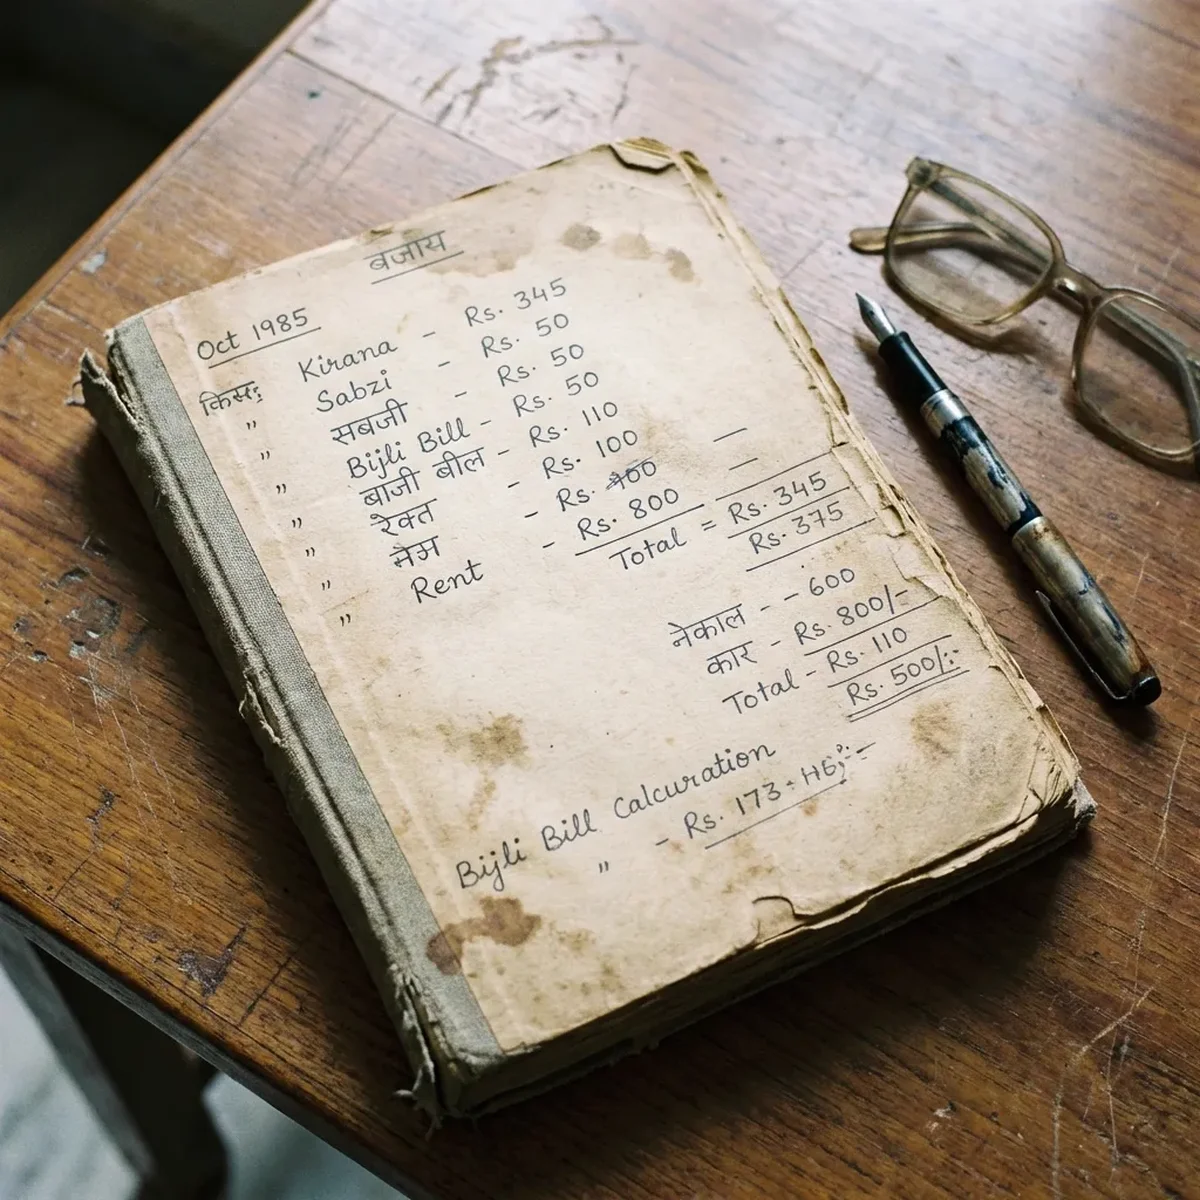 बजाय
Oct 1985
Kirana - Rs. 345
" Sabzi - Rs. 50
" सबजी - Rs. 50
" Bijli Bill - Rs. 50
" बाजी बील - Rs. 110
" रेक्त - Rs. 100
" - Rs.
" Rent - Rs. 800
Total = Rs. 345
Rs. 375
नेकाल - - 600
कार - Rs. 800/-
Total - Rs. 110
Rs. 500/-
Bijli Bill Calcuration
" - Rs. 173